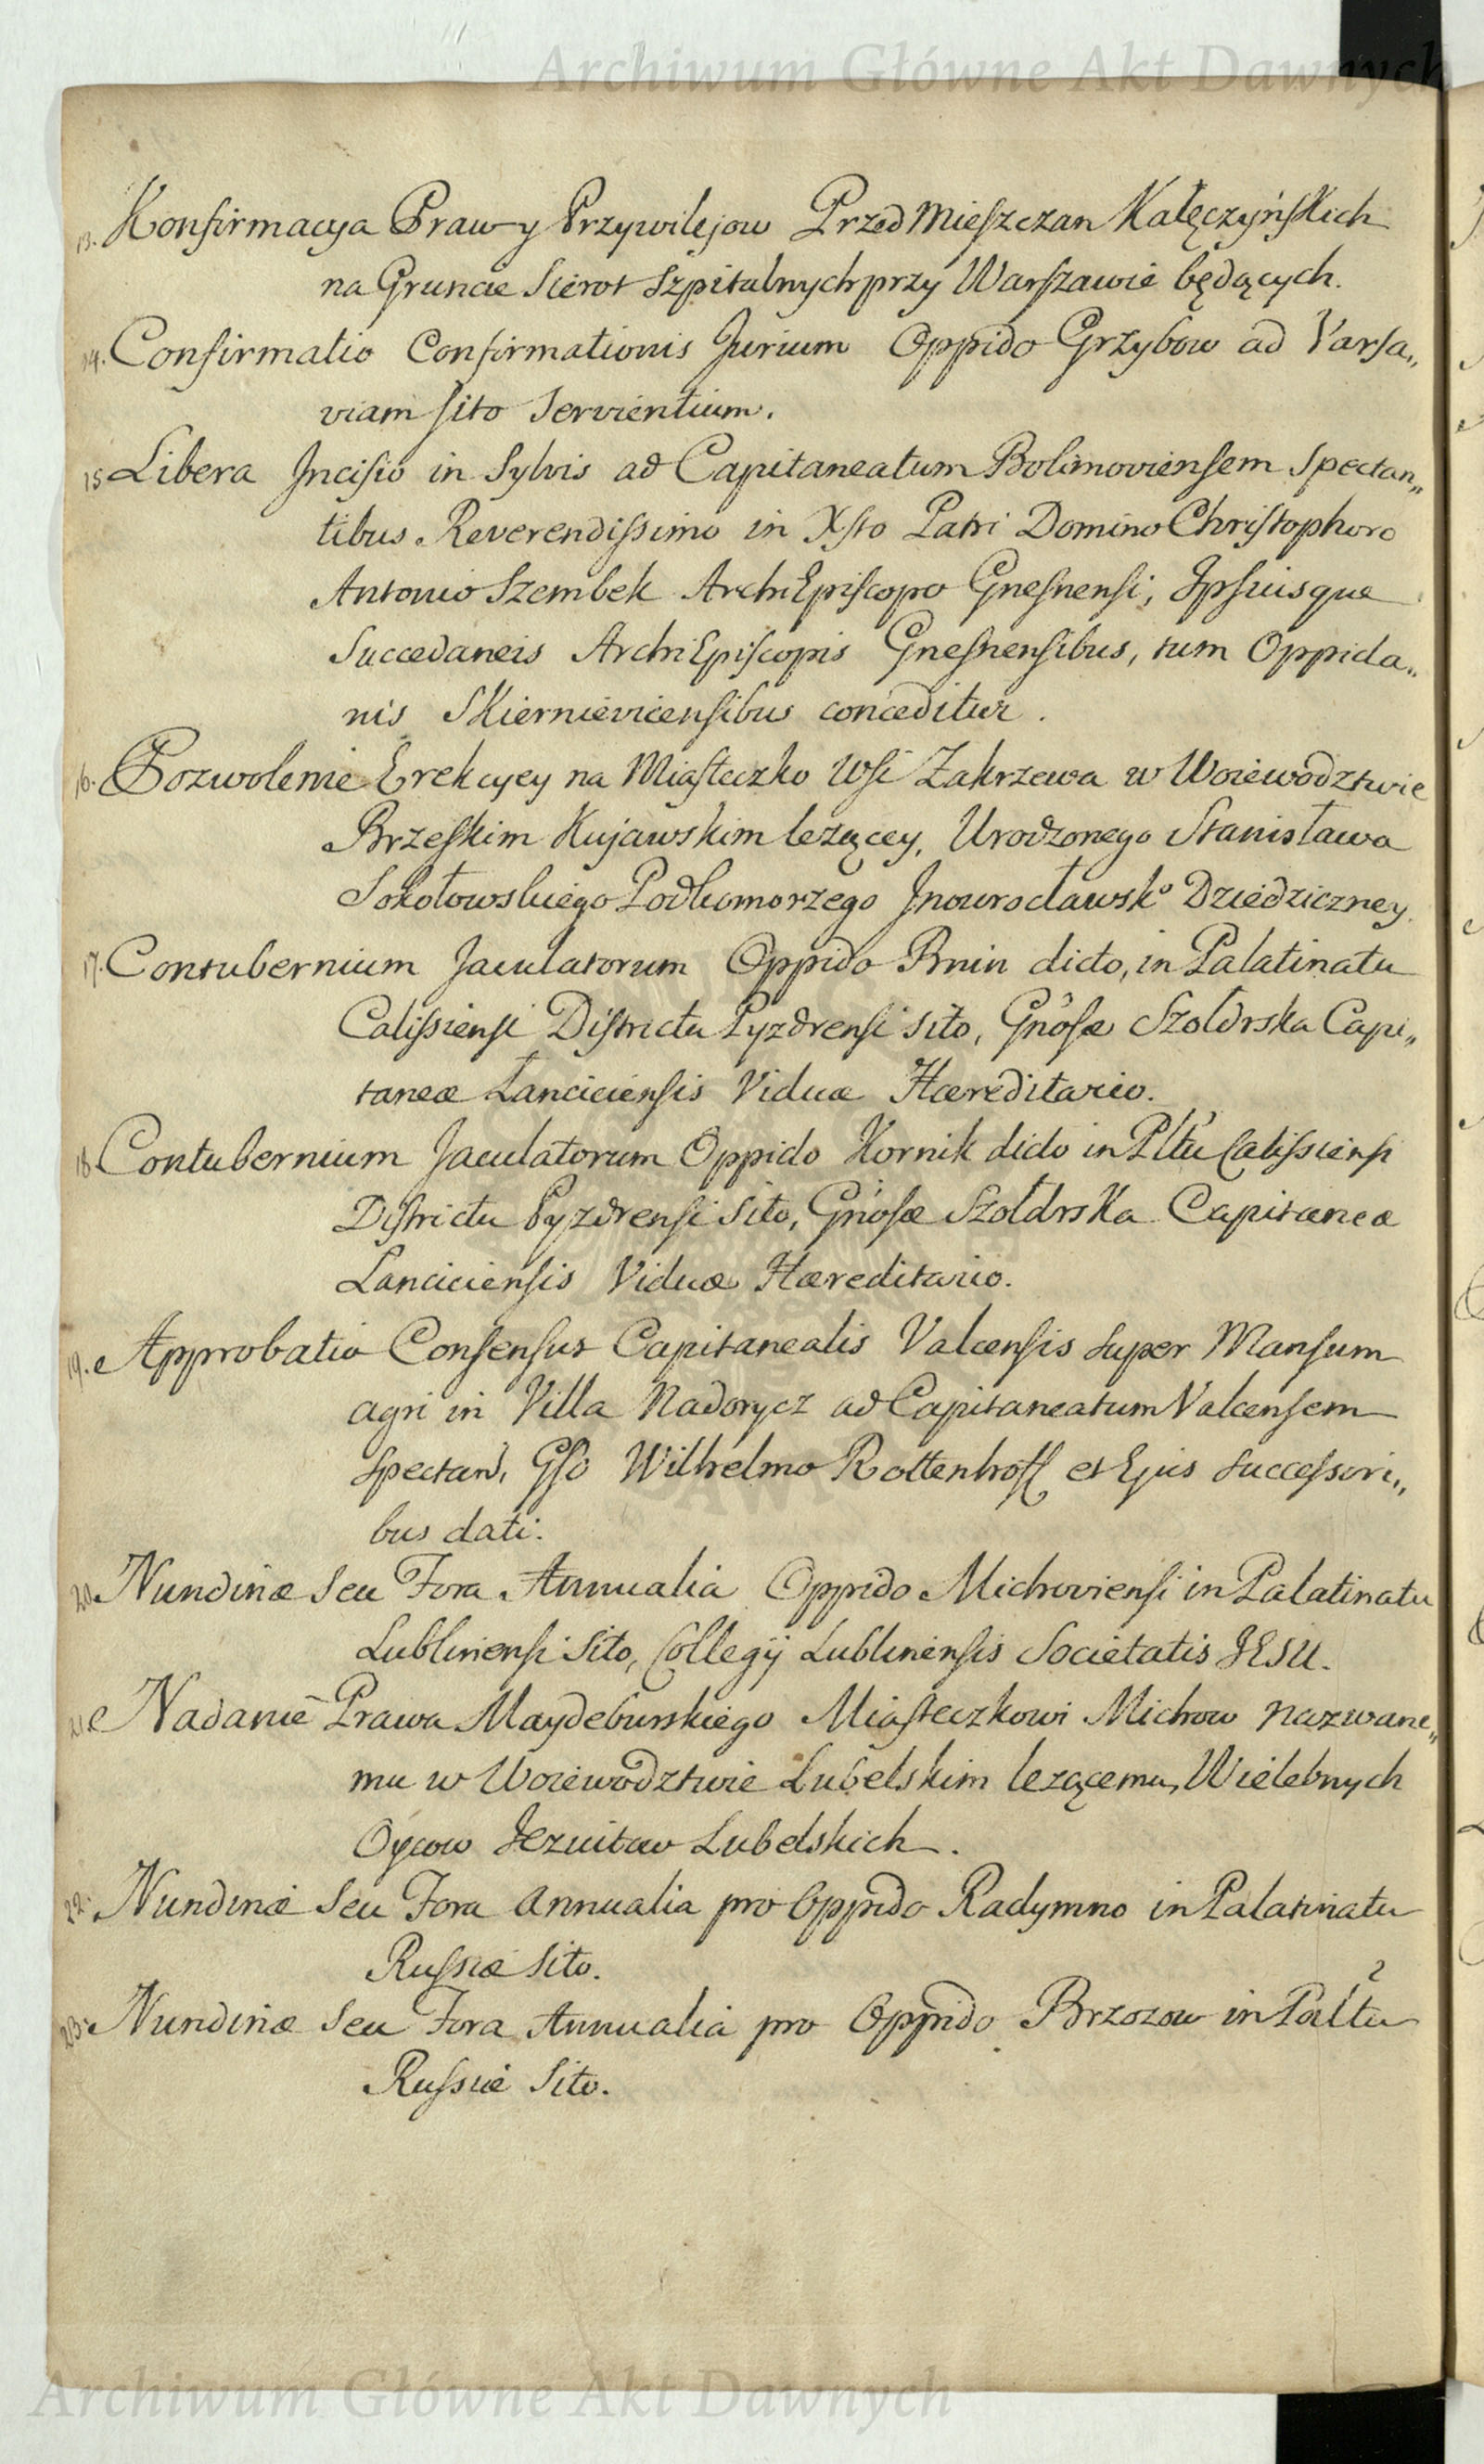 Archiwum Główne Akt Dawnych
13. Konfirmacya Praw y Przywilejow Przed Mieszczan Kałęczyńskich
na Gruncie Sierot Szpitalnych przy Warszawie będących.
14. Confirmatio Confirmationis Jurium Oppido Grzybow ad Varsa„
viam sito Servientium.
15 Libera Incisio in Sylvis ad Capitaneatum Bolimoviensem Spectan„
tibus Reverendissimo in Xsto Patri Domino Christophoro
Antonio Szembek ArchiEpiscopo Gnesnensi, Ipsiusque
Succedaneis ArchiEpiscopis Gnesnensibus, tum Oppida„
nis Skiernievicensibus conceditur.
16. Pozwolenie Erekcyey na Miasteczko Wsi Zakrzewa w Woiewodztwie
Brzeskim Kujawskim lezącey, Urodzonego Stanisława
Sokołowskiego Podkomorzego Jnowrocławsko Dziedziczney.
17. Contubernium Jaculatorum Oppido Bnin dicto, in Palatinatu
Calissiensi Districtu Pyzdrensi sito, Gnosæ Szołdrska Capi„
taneæ Lanciciensis Viduæ Hæreditario.
18 Contubernium Jaculatorum Oppido Kornik dicto in Pltu Calissiensi
Districtu Pyzdrensi Sito, Gnosæ Szołdrska Capitaneæ
Lanciciensis Viduæ Hæreditario.
19. Approbatio Consensus Capitanealis Valcensis super Mansum
agri in Villa Nadorycz ad Capitaneatum Valcensem
spectan, Gso Wilhelmo Rottenhoff et Ejus successori„
bus dati.
20. Nundinæ seu Fora Annualia Oppido Michoviensi in Palatinatu
Lublinensi Sito, Collegij Lublinensis Societatis JESU.
21. Nadanie Prawa Maydeburskiego Miasteczkowi Michow nazwane„
mu w Woiewodztwie Lubelskim lezącemu, Wielebnych
Oycow Jezuitow Lubelskich.
22. Nundinæ Seu Fora Annualia pro Oppido Radymno in Palatinatu
Russiæ Sito.
23. Nundinæ Seu Fora Annualia pro Oppido Brzozow in Paltu
Russiæ Sito.
Archiwum Główne Akt Dawnych